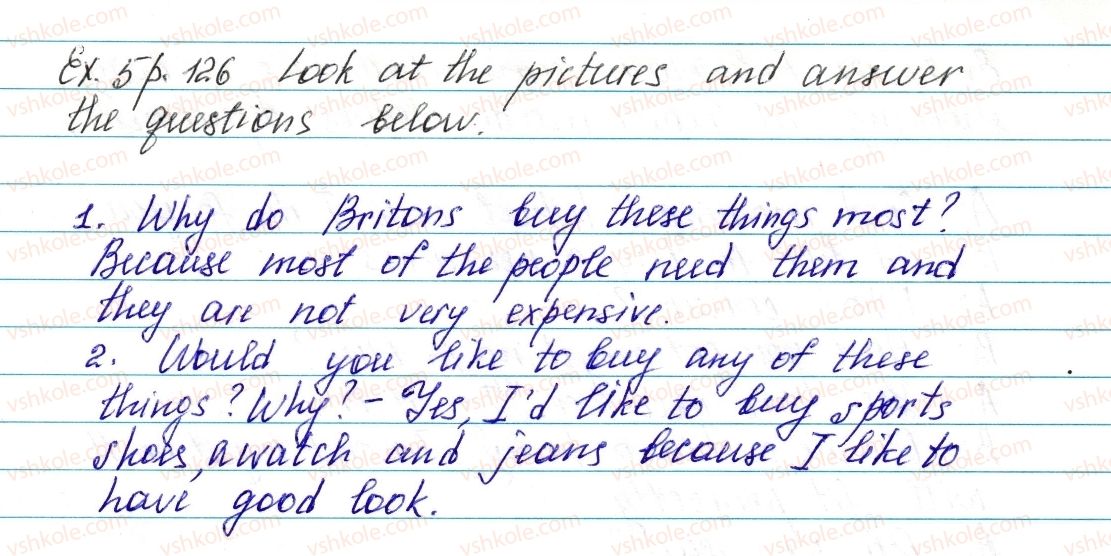 Ex. 5 p. 126 Look at the pictures and answer
the questions below.
1. Why do Britons buy these things most?
Because most of the people need them and
they are not very expensive.
2. Would you like to buy any of these
things? Why? - Yes, I'd like to buy sports
shoes, a watch and jeans because I like to
have good look.